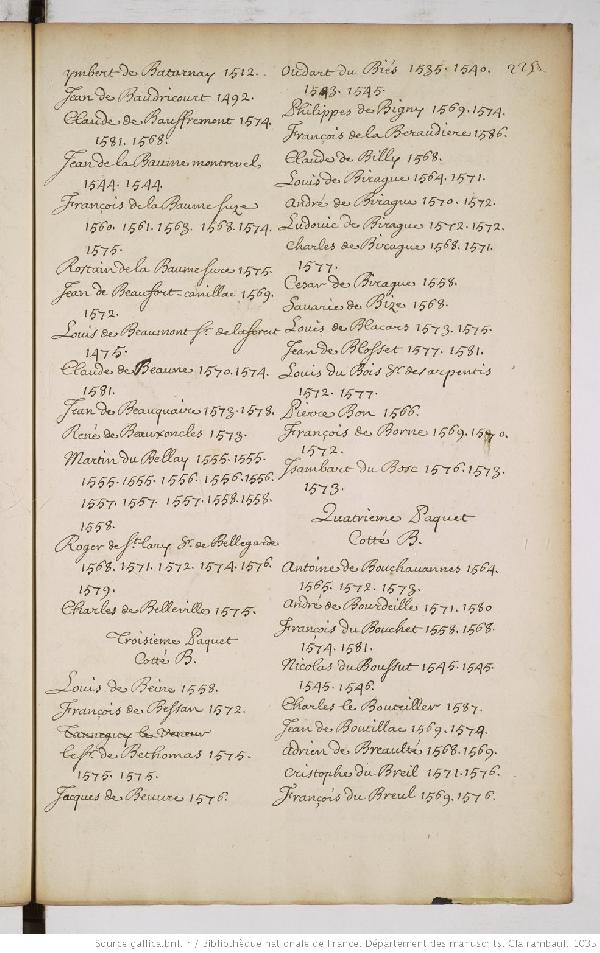 ymbert de Batarnay 1512.
Jean de Baudricourt 1492.
Claude de Bauffremont 1574.
1581. 1568.
Jean de la Baume montrevel,
1544. 1544.
François de la Baume suze
1560. 1561. 1563. 1568. 1574.
1575.
Rostain de la Baume suze 1575.
Jean de Beaufort-canillac 1569.
1572.
Louis de Beaumont Sr. de la forest
1475.
Claude de Beaune 1570. 1574.
1581.
Jean de Beauquaire 1573. 1578.
René de Beauxoncles 1573.
Martin du Bellay 1555. 1555.
1555. 1555. 1556. 1556. 1556.
1557. 1557. 1557. 1558. 1558.
1558.
Roger de St. lary Sr. de Bellegarde
1568. 1571. 1572. 1574. 1576.
1579.
Charles de Belleville 1575.
Troisieme Paquet
Cotté B.
Louis de Beine 1558.
François de Bessan 1572.
Tanneguy le Veneur
le Sr. de Bethomas 1575.
1575. 1575.
Jacques de Beuvre 1576.
Oudart du Biés 1535. 1540.
1543. 1545.
Philippes de Bigny 1569. 1574.
François de la Beraudiere 1586.
Claude de Billy 1568.
Louis de Birague 1564. 1571.
André de Birague 1570. 1572.
Ludovic de Birague 1572. 1572.
Charles de Birague 1568. 1571.
1577.
Cesar de Birague 1558.
Savarie de Bize 1568.
Louis de Blacars 1573. 1575.
Jean de Blosset 1577. 1581.
Louis du Bois Sr. des arpentis
1572. 1577.
Pierre Bon 1566.
François de Borne 1569. 1570.
1572.
Jsambart du Bosc 1576. 1573.
1573.
Quatrieme Paquet
Cotté B.
Antoine de Bouchavannes 1564.
1565. 1572. 1573.
André de Bourdeille 1571. 1580
François du Bouchet 1558. 1568.
1574. 1581.
Nicolas du Boussut 1545. 1545.
1545. 1546.
Charles le Bouteiller 1587.
Jean de Boutillac 1569. 1574.
Adrien de Breauté 1568. 1569.
Cristophe du Breil 1571. 1576.
François du Breul 1569. 1576.
Source gallica.bnf.fr / Bibliothèque nationale de France. Département des manuscrits. Clairambault 1035